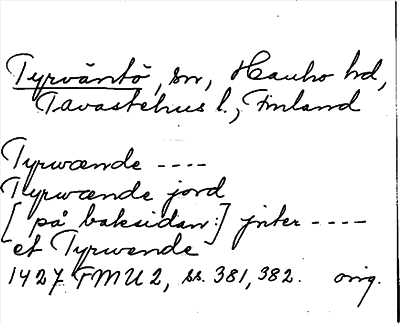 Tyrväntö, sn, Hauho hd,
Tavastehus l., Finland
Tyrwænde ----
Tyrwænde jord
[på baksidan:] jnter ----
et Tyrwende
1427 FMU 2, ss. 381, 382. orig.